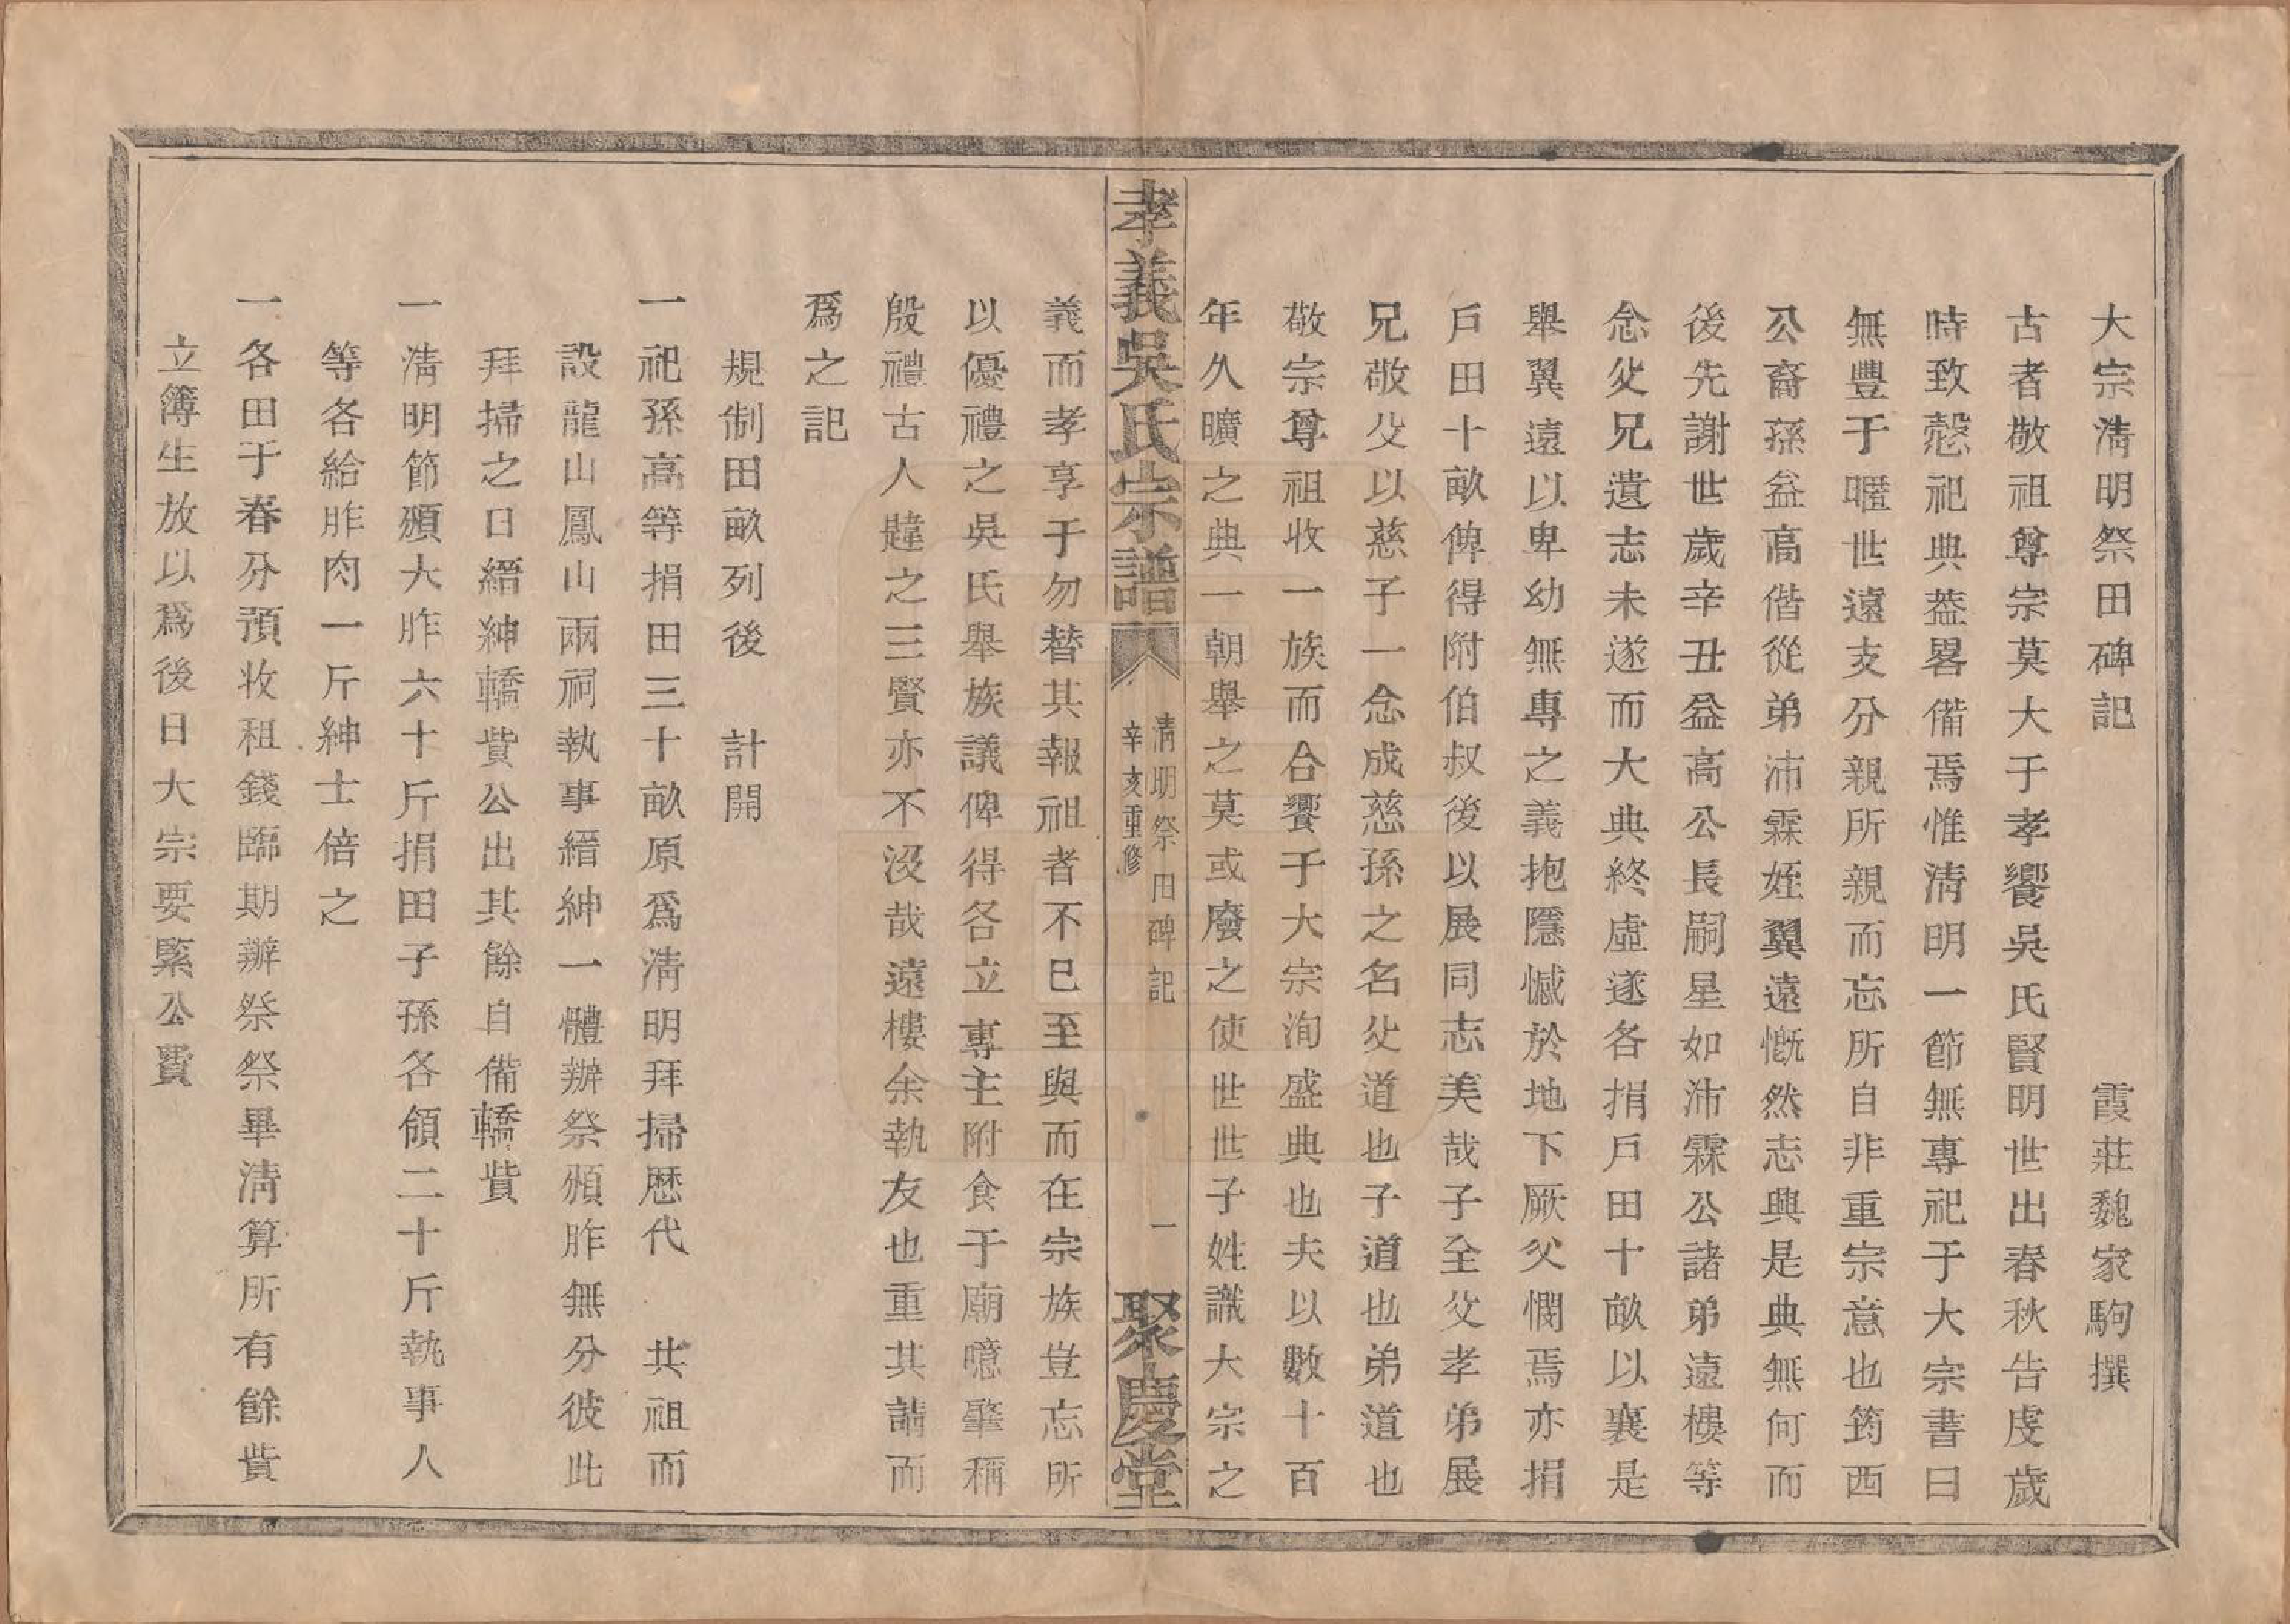 大宗淸明祭田碑記　霞莊魏家駒撰
古者敬祖尊宗莫大于孝饗吳氏賢明世出春秋告虔歲
時致慤祀典葢畧備焉惟淸明一節無專祀于大宗書曰
無豐于暱世遠支分親所親而忘所自非重宗意也筠西
公裔孫益高偕從弟沛霖姪翼遠慨然志興是典無何而
後先謝世歲辛丑益高公長嗣星如沛霖公諸弟遠樓等
念父兄遺志未遂而大典終虛遂各捐戶田十畝以襄是
舉翼遠以卑幼無專之義抱隱憾於地下厥父憫焉亦捐
戶田十畝俾得附伯叔後以展同志美哉子全父孝弟展
兄敬父以慈子一念成慈孫之名父道也子道也弟道也
敬宗尊祖收一族而合饗于大宗洵盛典也夫以數十百
年久曠之典一朝舉之莫或廢之使世世子姓識大宗之
孝義吳氏宗譜　淸明祭田碑記　辛亥重修　一　聚慶堂
義而孝享于勿替其報祖者不已至與而在宗族豈忘所
以優禮之吳氏舉族議俾得各立專主附食于廟噫肇稱
殷禮古人韙之三賢亦不沒哉遠樓余執友也重其請而
爲之記
規制田畝列後　計開
一祀孫高等捐田三十畝原爲淸明拜掃歷代　共祖而
設龍山鳳山兩祠執事縉紳一體辦祭頒胙無分彼此
拜掃之日縉紳轎貲公出其餘自備轎貲
一淸明節頒大胙六十斤捐田子孫各領二十斤執事人
等各給胙肉一斤紳士倍之
一各田于春分預收租錢臨期辦祭祭畢淸算所有餘貲
立簿生放以爲後日大宗要緊公費